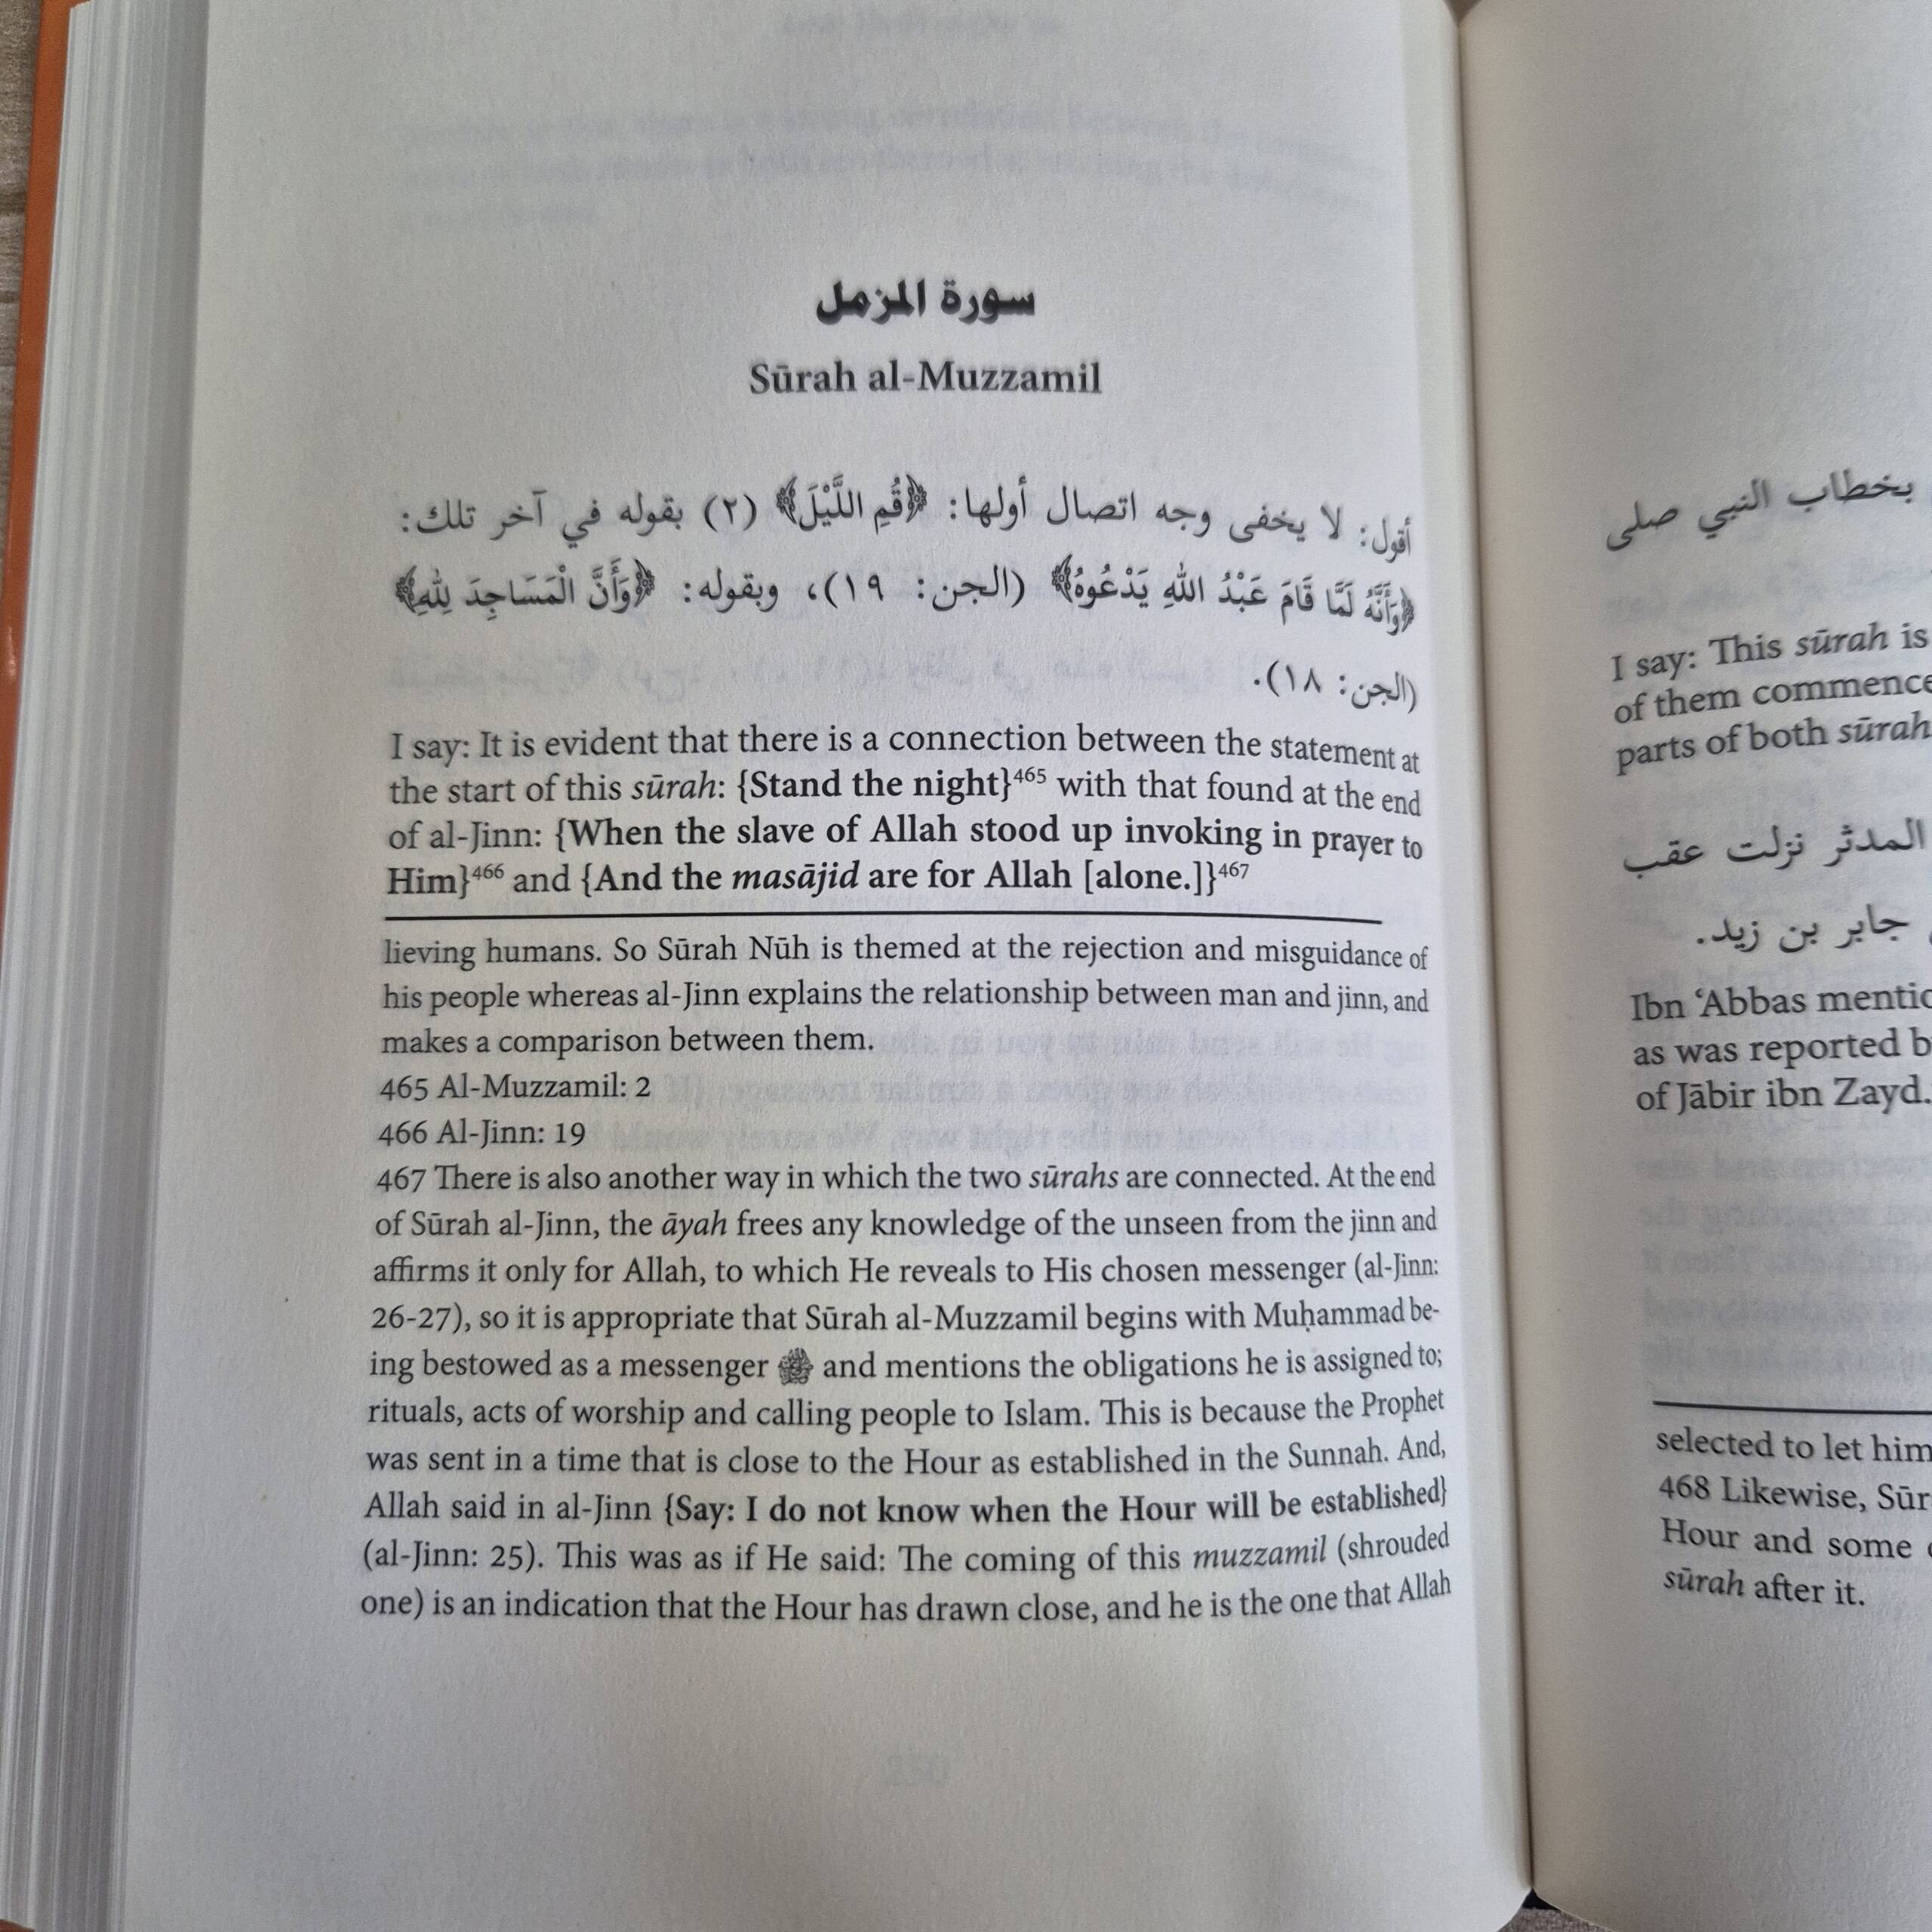 سورة المزمل
Sūrah al-Muzzamil
أقول: لا يخفى وجه اتصال أولها: ﴿قُمِ اللَّيْلَ﴾ (٢) بقوله في آخر تلك:
﴿وَأَنَّهُ لَمَّا قَامَ عَبْدُ اللهِ يَدْعُوهُ﴾ (الجن: ١٩)، وبقوله: ﴿وَأَنَّ الْمَسَاجِدَ لِلهِ﴾
(الجن: ١٨).
I say: It is evident that there is a connection between the statement at
the start of this sūrah: {Stand the night}465 with that found at the end
of al-Jinn: {When the slave of Allah stood up invoking in prayer to
Him}466 and {And the masājid are for Allah [alone.]}467
lieving humans. So Sūrah Nūh is themed at the rejection and misguidance of
his people whereas al-Jinn explains the relationship between man and jinn, and
makes a comparison between them.
465 Al-Muzzamil: 2
466 Al-Jinn: 19
467 There is also another way in which the two sūrahs are connected. At the end
of Sūrah al-Jinn, the āyah frees any knowledge of the unseen from the jinn and
affirms it only for Allah, to which He reveals to His chosen messenger (al-Jinn:
26-27), so it is appropriate that Sūrah al-Muzzamil begins with Muḥammad be-
ing bestowed as a messenger ﷺ and mentions the obligations he is assigned to;
rituals, acts of worship and calling people to Islam. This is because the Prophet
was sent in a time that is close to the Hour as established in the Sunnah. And,
Allah said in al-Jinn {Say: I do not know when the Hour will be established}
(al-Jinn: 25). This was as if He said: The coming of this muzzamil (shrouded
one) is an indication that the Hour has drawn close, and he is the one that Allah
بخطاب النبي صلى
I say: This sūrah is
of them commence
parts of both sūrah
المدثر نزلت عقب
جابر بن زيد.
Ibn ‘Abbas mentio
as was reported b
of Jābir ibn Zayd.
selected to let him
468 Likewise, Sūr
Hour and some
sūrah after it.